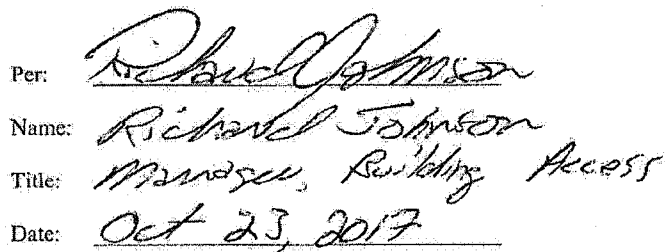 Per: Richard Johnson
Name: Richard Johnson
Title: Manager, Building Access
Date: Oct 23, 2017